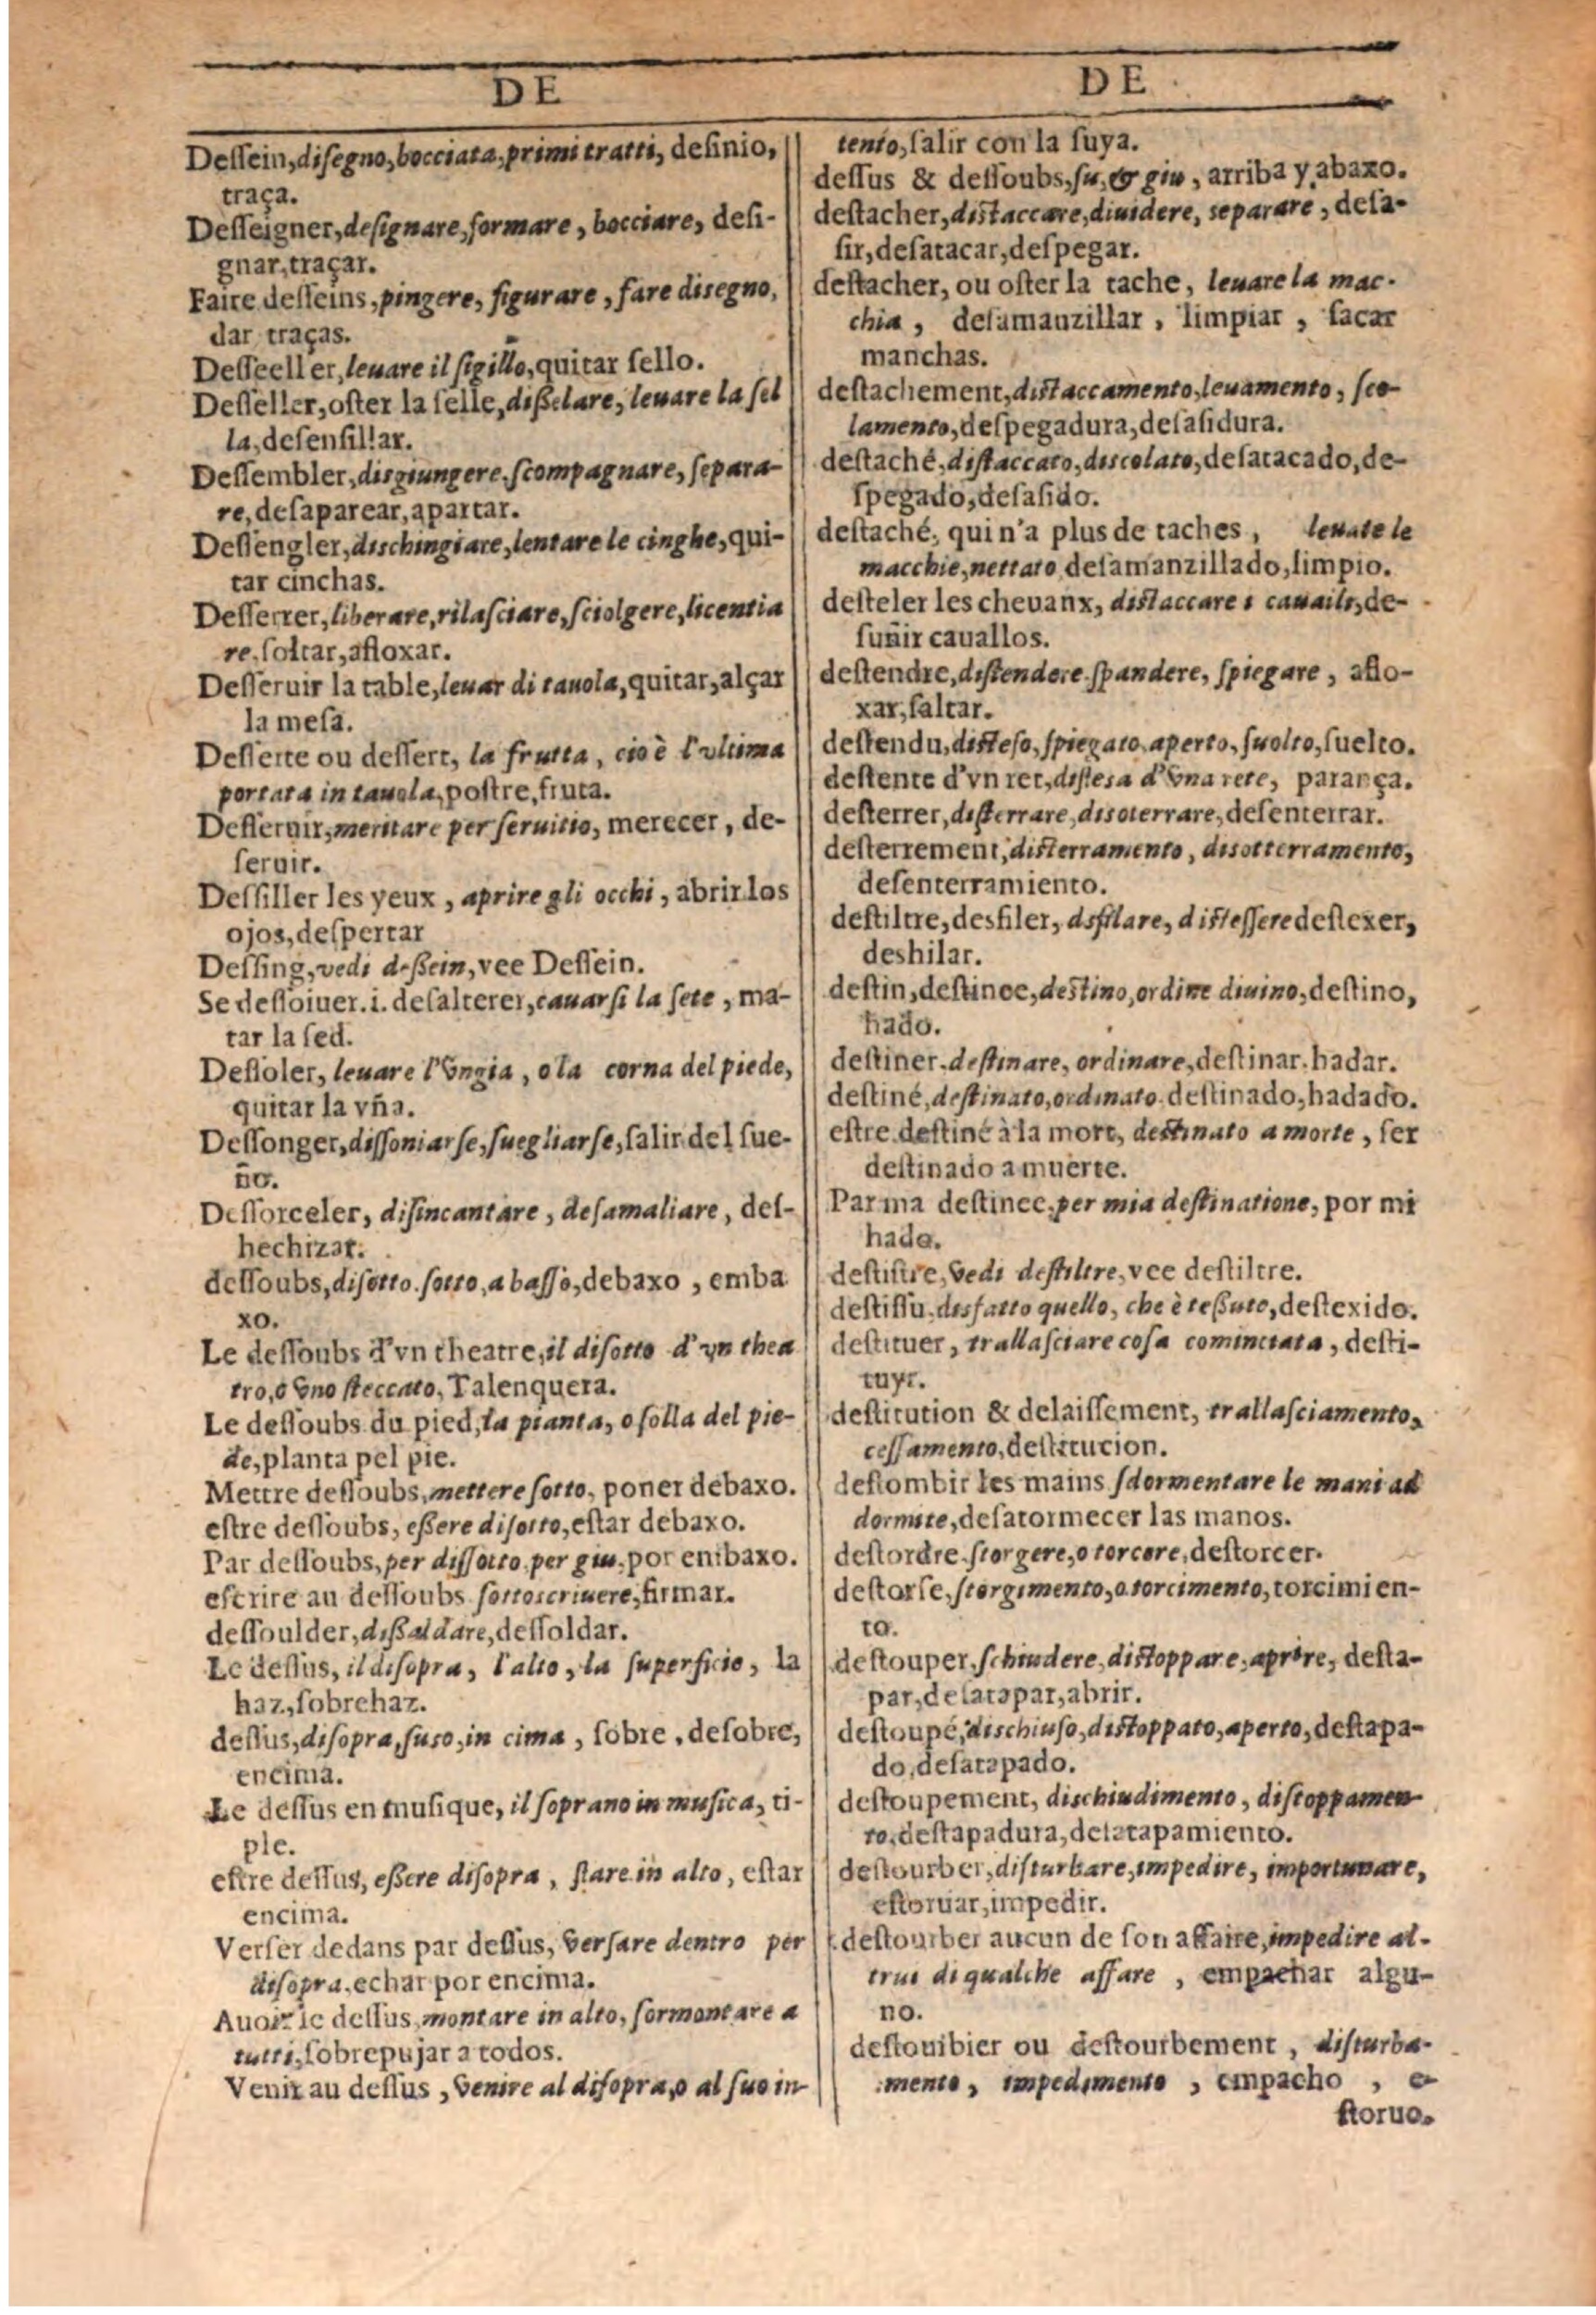 DE
Desſein, diſegno, bocciata, primi tratti, deſinio,
traça.
Deſſeigner, deſignare, formare, bocciare, deſi-
gnar, traçar.
Faire deſſeins, pingere, figurare, fare disegno,
dar traças.
Deſſeeller, leuare il ſigillo, quitar ſello.
Deſſeller, oſter la ſelle, dißelare, leuare la ſel
la, deſenſillar.
Deſſembler, disgiungere, ſcompagnare, ſepara-
re, deſaparear, apartar.
Deſſengler, dischingiare, lentare le cinghe, qui-
tar cinchas.
Deſſerrer, liberare, rilaſciare, ſciolgere, licentia
re, ſoltar, afloxar.
Deſſeruir la table, leuar di tauola, quitar, alçar
la meſa.
Deſſerte ou deſſert, la frutta, cio è l'vltima
portata in tauola, poſtre, fruta.
Deſſeruir, meritare per ſeruitio, merecer, de-
ſeruir.
Deſſiller les yeux, aprire gli occhi, abrir los
ojos, deſpertar
Deſſing, vedi deßein, vee Deſſein.
Se deſſoiuer. i. deſalterer, cauarſi la ſete, ma-
tar la ſed.
Deſſoler, leuare l'vngia, o la corna del piede,
quitar la vña.
Deſſonger, diſſoniarſe, ſuegliarſe, ſalir del ſue-
ño.
Deſſorceler, diſincantare, deſamaliare, deſ-
hechizar.
deſſoubs, diſotto. ſotto, a baſſo, debaxo, emba
xo.
Le deſſoubs d'vn theatre, il diſotto d'vn thea
tro, o vno ſteccato, Talenquera.
Le deſſoubs du pied, la pianta, o ſolla del pie-
de, planta pel pie.
Mettre deſſoubs, mettere ſotto, poner debaxo.
eſtre deſſoubs, eßere diſotto, eſtar debaxo.
Par deſſoubs, per diſſotto, per giu, por enibaxo.
eſcrire au deſſoubs ſottoscriuere, firmar.
deſſoulder, dißaldare, deſſoldar.
Le deſſus, il diſopra, l'alto, la ſuperficie, la
haz, ſobrehaz.
deſſus, diſopra, ſuso, in cima, ſobre, deſobre,
encima.
Le deſſus en muſique, il ſoprano in muſica, ti-
ple.
eſtre deſſus, eßere diſopra, ſtare in alto, eſtar
encima.
Verſer dedans par deſſus, verſare dentro per
diſopra, echar por encima.
Auoir le deſſus, montare in alto, ſormontare a
tutti, ſobrepujar a todos.
Venir au deſſus, venire al diſopra, o al ſuo in-
DE
tento, ſalir con la ſuya.
deſſus & deſſoubs, ſu, & giu, arriba y abaxo.
deſtacher, diſtaccare, diuidere, separare, deſa-
ſir, deſatacar, deſpegar.
deſtacher, ou oſter la tache, leuare la mac-
chia, deſamauzillar, limpiar, ſacar
manchas.
deſtachement, diſtaccamento, leuamento, ſco-
lamento, deſpegadura, deſaſidura.
deſtaché, diſtaccato, discolato, deſatacado, de-
ſpegado, deſaſido.
deſtaché, qui n'a plus de taches, leuate le
macchie, nettato, deſamanzillado, limpio.
deſteler les cheuanx, diſtaccare i cauaili, de-
ſuñir cauallos.
deſtendre, diſtendere. ſpandere, ſpiegare, aflo-
xar, ſaltar.
deſtendu, diſteſo, ſpiegato, aperto, ſuolto, ſuelto.
deſtente d'vn ret, diſtesa d'vna rete, parança.
deſterrer, diſterrare, disoterrare, deſenterrar.
deſterrement, diſterramento, disotterramento,
deſenterramiento.
deſtiltre, desfiler, disfilare, diſteſſere deſtexer,
deshilar.
deſtin, deſtinee, deſtino, ordine diuino, deſtino,
hado.
deſtiner, deſtinare, ordinare, deſtinar, hadar.
deſtiné, deſtinato, ordinato, deſtinado, hadado.
eſtre deſtiné à la mort, deſtinato a morte, ſer
deſtinado a muerte.
Par ma deſtinee, per mia deſtinatione, por mi
hado.
deſtiſtre, vedi deſtiltre, vee deſtiltre.
deſtiſſu, disfatto quello, che è teßuto, deſtexido.
deſtituer, trallaſciare coſa cominciata, deſti-
tuyr.
deſtitution & delaiſſement, trallaſciamento,
ceſſamento, deſtitucion.
deſtombir les mains ſdormentare le mani ad
dormite, deſatormecer las manos.
deſtordre. ſtorgere, o torcere, deſtorcer.
deſtorſe, ſtorgimento, o torcimento, torcimien-
to.
deſtouper, ſchiudere, diſtoppare, aprire, deſta-
par, deſatapar, abrir.
deſtoupé, dischiuſo, diſtoppato, aperto, deſtapa-
do, deſatapado.
deſtoupement, dischiudimento, diſtoppamen-
to, deſtapadura, deſatapamiento.
deſtourber, diſturbare, impedire, importunare,
eſtoruar, impedir.
deſtourber aucun de ſon affaire, impedire al-
trui di qualche affare, empachar algu-
no.
deſtouibier ou deſtourbement, diſturba-
mento, impedimento, empacho, e-
ſtoruo.